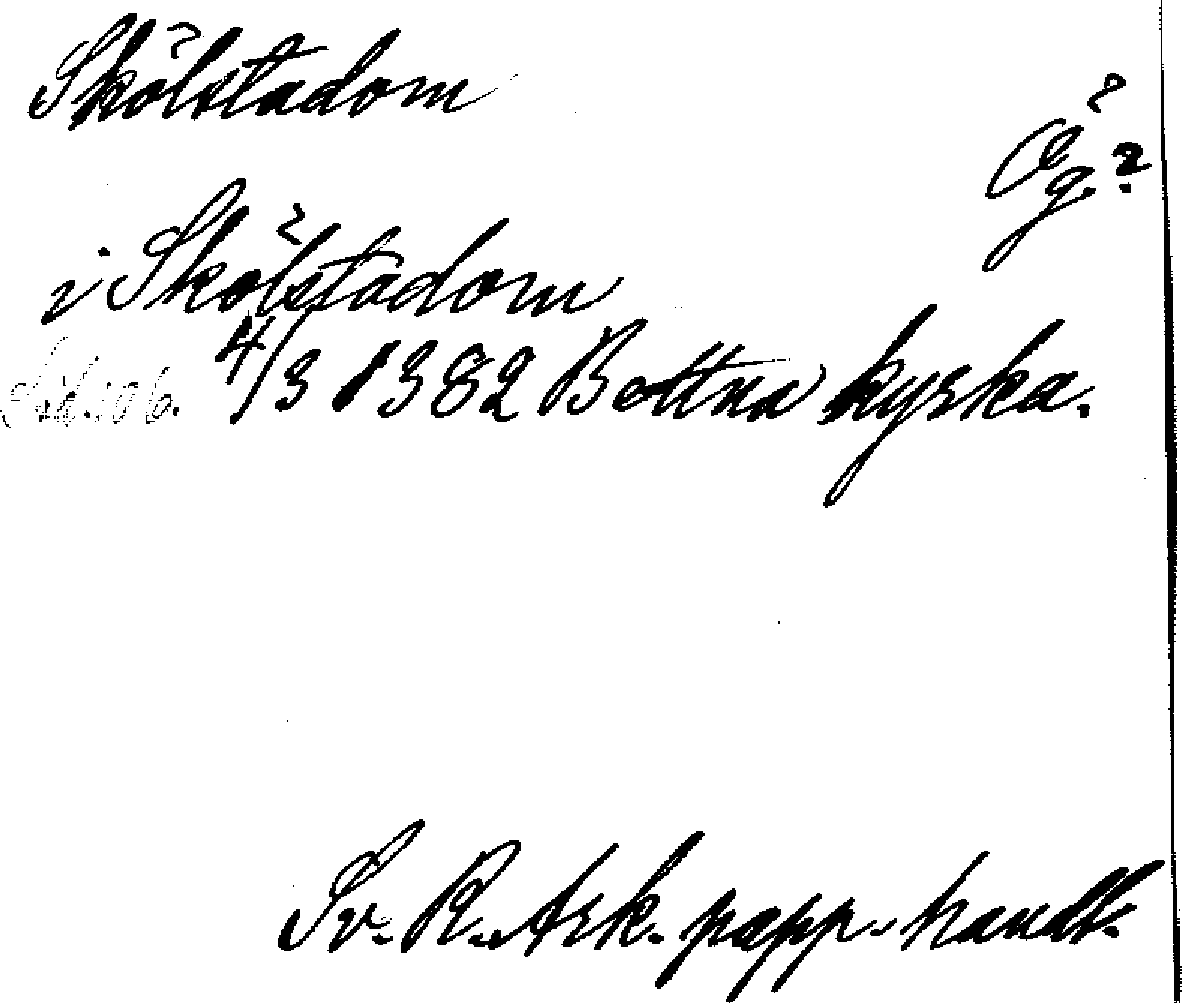 Skölstadom
Ög.?
i Skölstadom
4/3 1382 Bottna kyrka.
Sv. R. Ark. papp. handl.